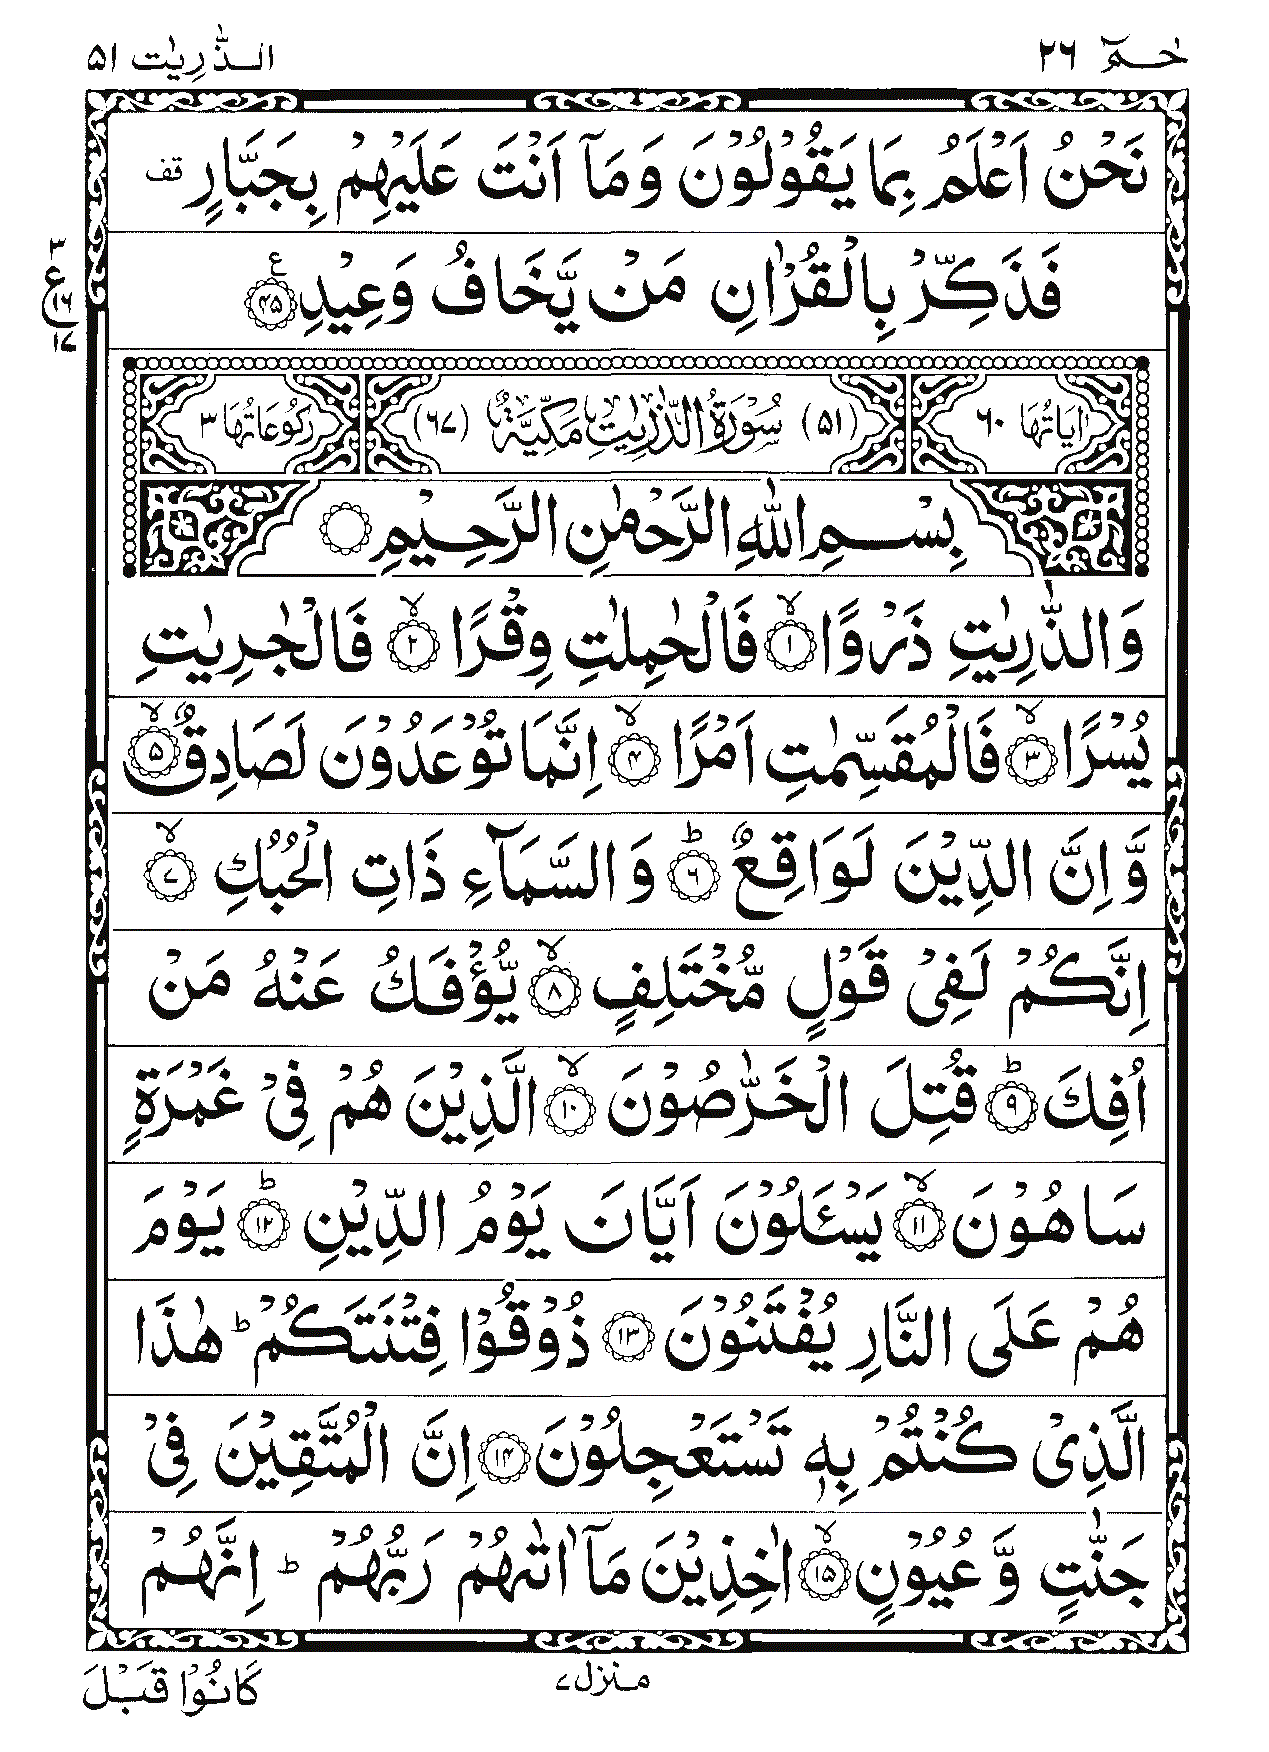 حٰـمٓ ٢٦
الذّٰرِیٰت ٥١
نَحْنُ اَعْلَمُ بِمَا یَقُوْلُوْنَ وَمَاۤ اَنْتَ عَلَیْهِمْ بِجَبَّارٍ قف
فَذَكِّرْ بِالْقُرْاٰنِ مَنْ یَّخَافُ وَعِیْدِ ۴۵ ع
٣
ع
١٦
١٧
اٰیَاتُهَا ٦٠ (٥١) سُوْرَةُ الذّٰرِیٰتِ مَكِّیَّةٌ (٦٧) رُكُوْعَاتُهَا ٣
بِسْمِ اللّٰهِ الرَّحْمٰنِ الرَّحِیْمِ
وَالذّٰرِیٰتِ ذَرْوًا ۙ۱ فَالْحٰمِلٰتِ وِقْرًا ۙ۲ فَالْجٰرِیٰتِ
یُسْرًا ۙ۳ فَالْمُقَسِّمٰتِ اَمْرًا ۙ۴ اِنَّمَا تُوْعَدُوْنَ لَصَادِقٌ ۙ۵
وَّاِنَّ الدِّیْنَ لَوَاقِعٌ ؕ۶ وَالسَّمَآءِ ذَاتِ الْحُبُكِ ۙ۷
اِنَّكُمْ لَفِیْ قَوْلٍ مُّخْتَلِفٍ ۙ۸ یُّؤْفَكُ عَنْهُ مَنْ
اُفِكَ ؕ۹ قُتِلَ الْخَرّٰصُوْنَ ۙ۱۰ الَّذِیْنَ هُمْ فِیْ غَمْرَةٍ
سَاهُوْنَ ۙ۱۱ یَسْـَٔلُوْنَ اَیَّانَ یَوْمُ الدِّیْنِ ؕ۱۲ یَوْمَ
هُمْ عَلَی النَّارِ یُفْتَنُوْنَ ۱۳ ذُوْقُوْا فِتْنَتَكُمْ ؕ هٰذَا
الَّذِیْ كُنْتُمْ بِهٖ تَسْتَعْجِلُوْنَ ۱۴ اِنَّ الْمُتَّقِیْنَ فِیْ
جَنّٰتٍ وَّعُیُوْنٍ ۙ۱۵ اٰخِذِیْنَ مَاۤ اٰتٰىهُمْ رَبُّهُمْ ؕ اِنَّهُمْ
منزل ۷
كَانُوْا قَبْلَ